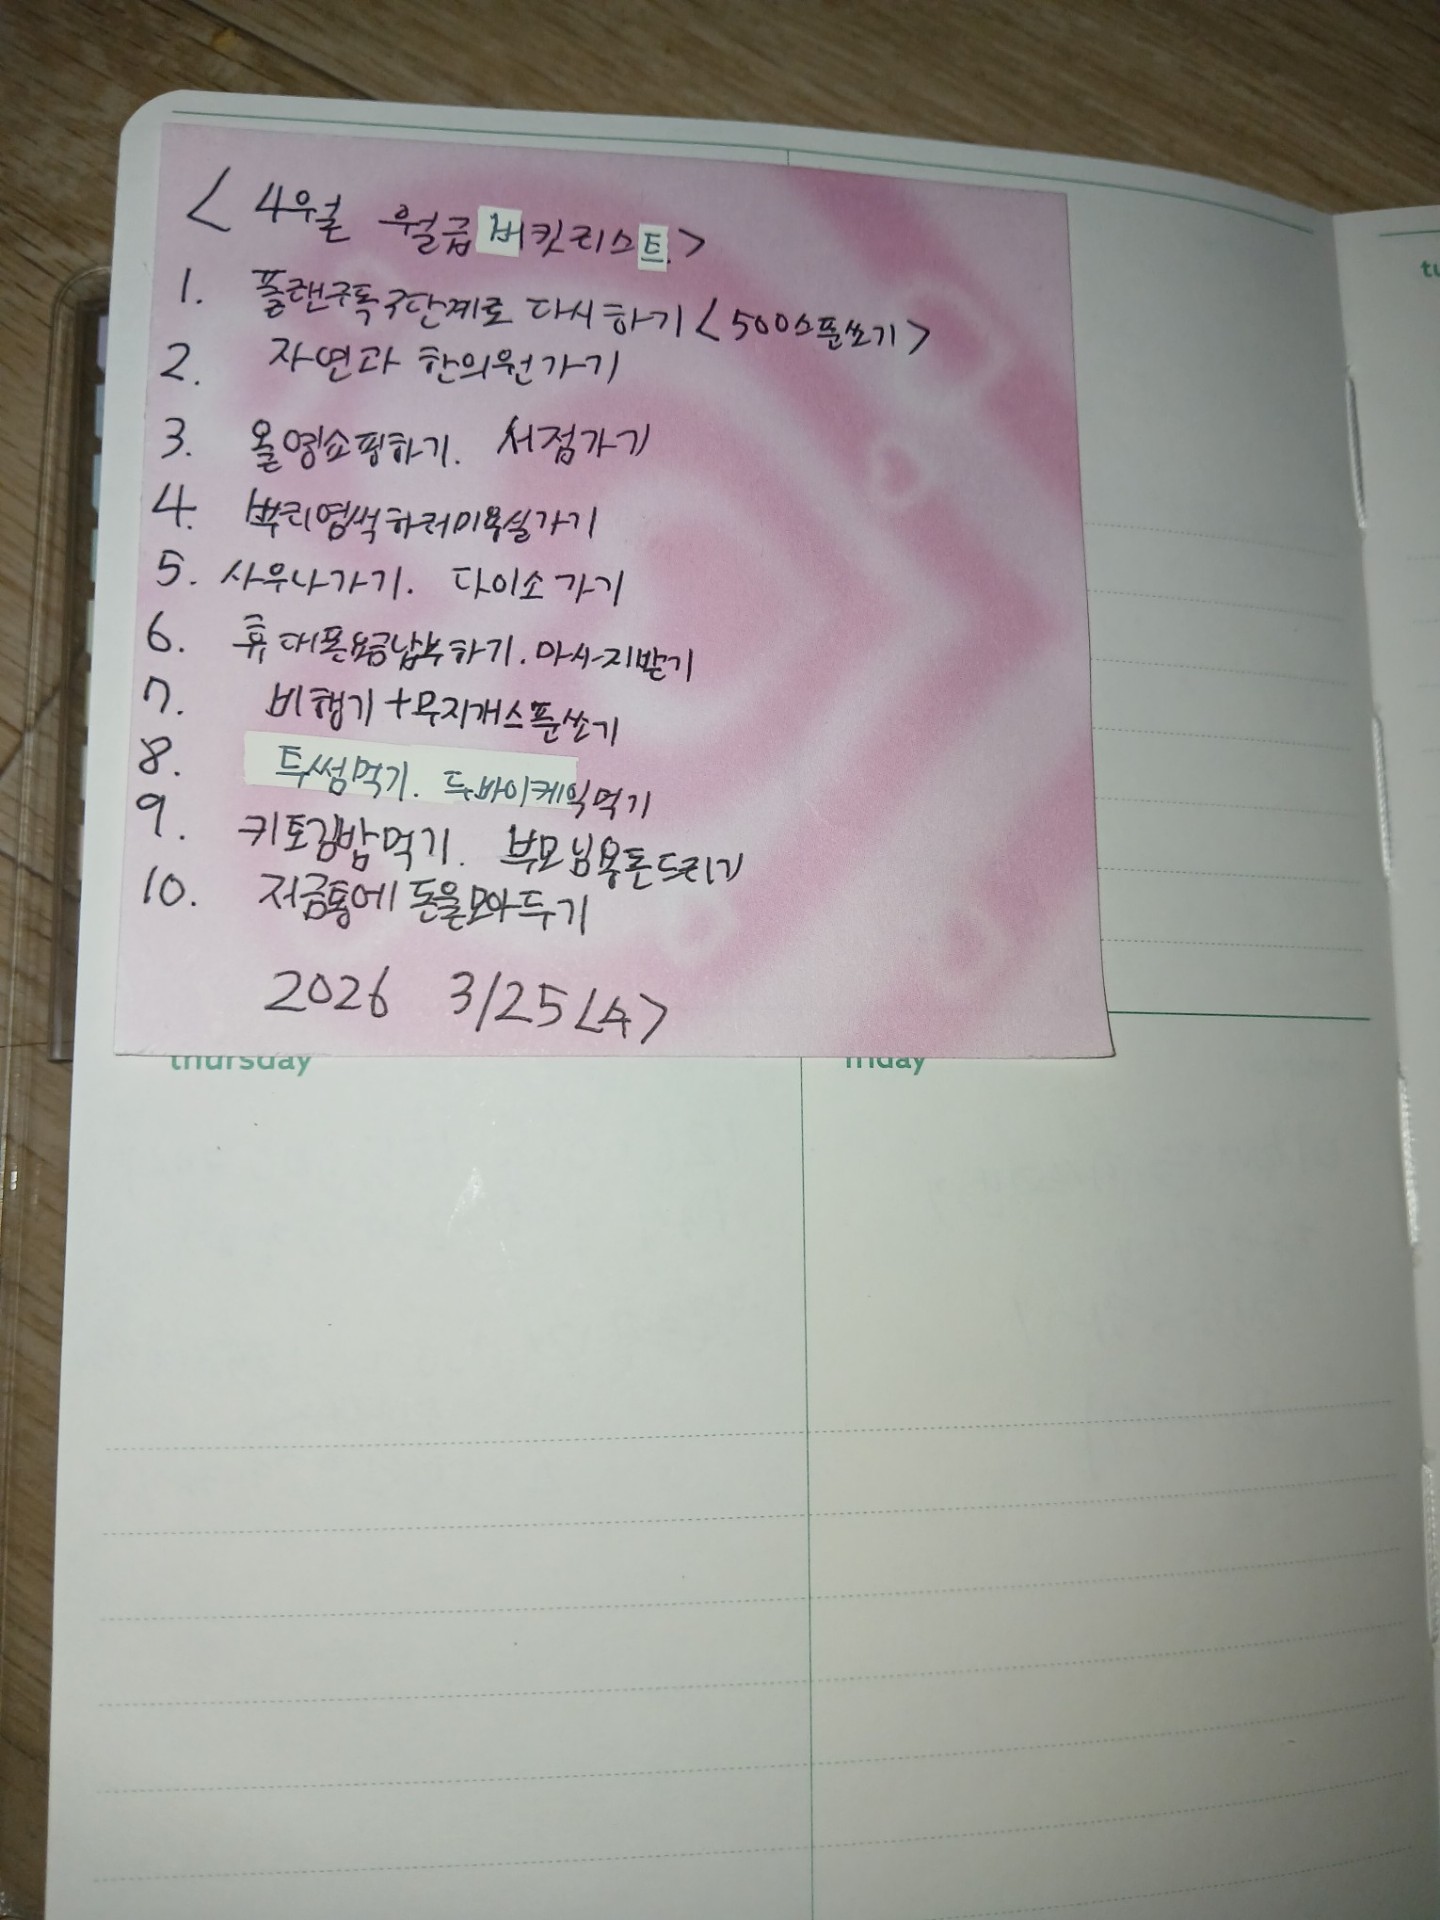 < 4월 월급버킷리스트.>
1. 플랜구독 3단계로 다시하기 <500스푼쏘기>
2. 자연과 한의원가기
3. 올영쇼핑하기. 서점가기
4. 뿌리염색하러미용실가기
5. 사우나가기. 다이소가기
6. 휴대폰요금납부하기. 마사지받기
7. 비행기+무지개스푼쏘기
8. 투썸먹기. 두바이케익먹기
9. 키토김밥먹기. 부모님용돈드리기
10. 저금통에 돈을모아두기
2026 3/25<수>
thursday friday